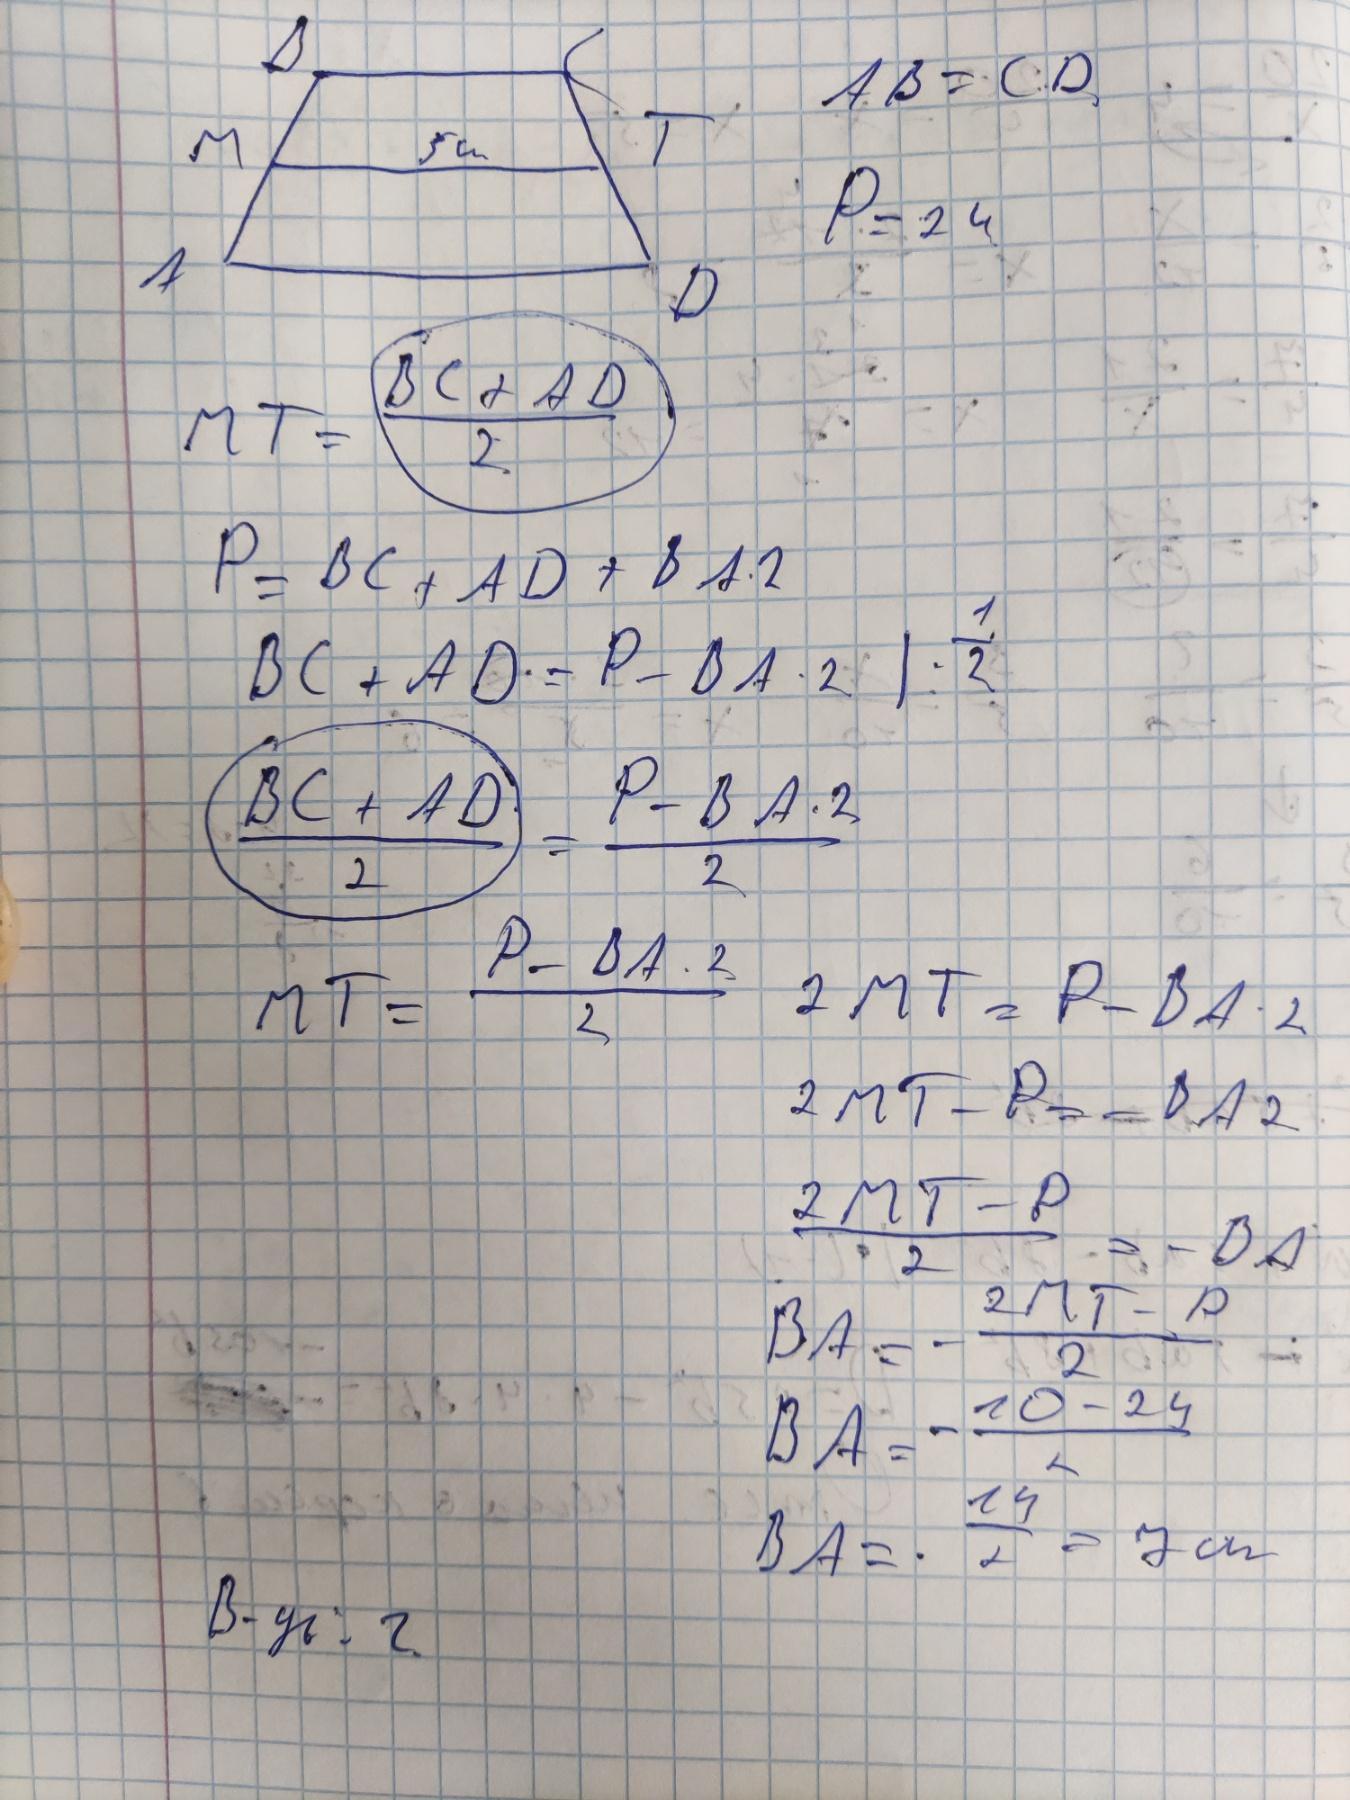 B C
AB = CD
M 5 см T
P = 24
A D
MT = \frac{BC + AD}{2}
P = BC + AD + BA·2
BC + AD = P - BA·2 | · \frac{1}{2}
\frac{BC + AD}{2} = \frac{P - BA·2}{2}
MT = \frac{P - BA·2}{2}
2MT = P - BA·2
2MT - P = - BA2
\frac{2MT - P}{2} = - BA
BA = - \frac{2MT - P}{2}
BA = - \frac{10 - 24}{2}
BA = · \frac{14}{2} = 7 см
В-дь: